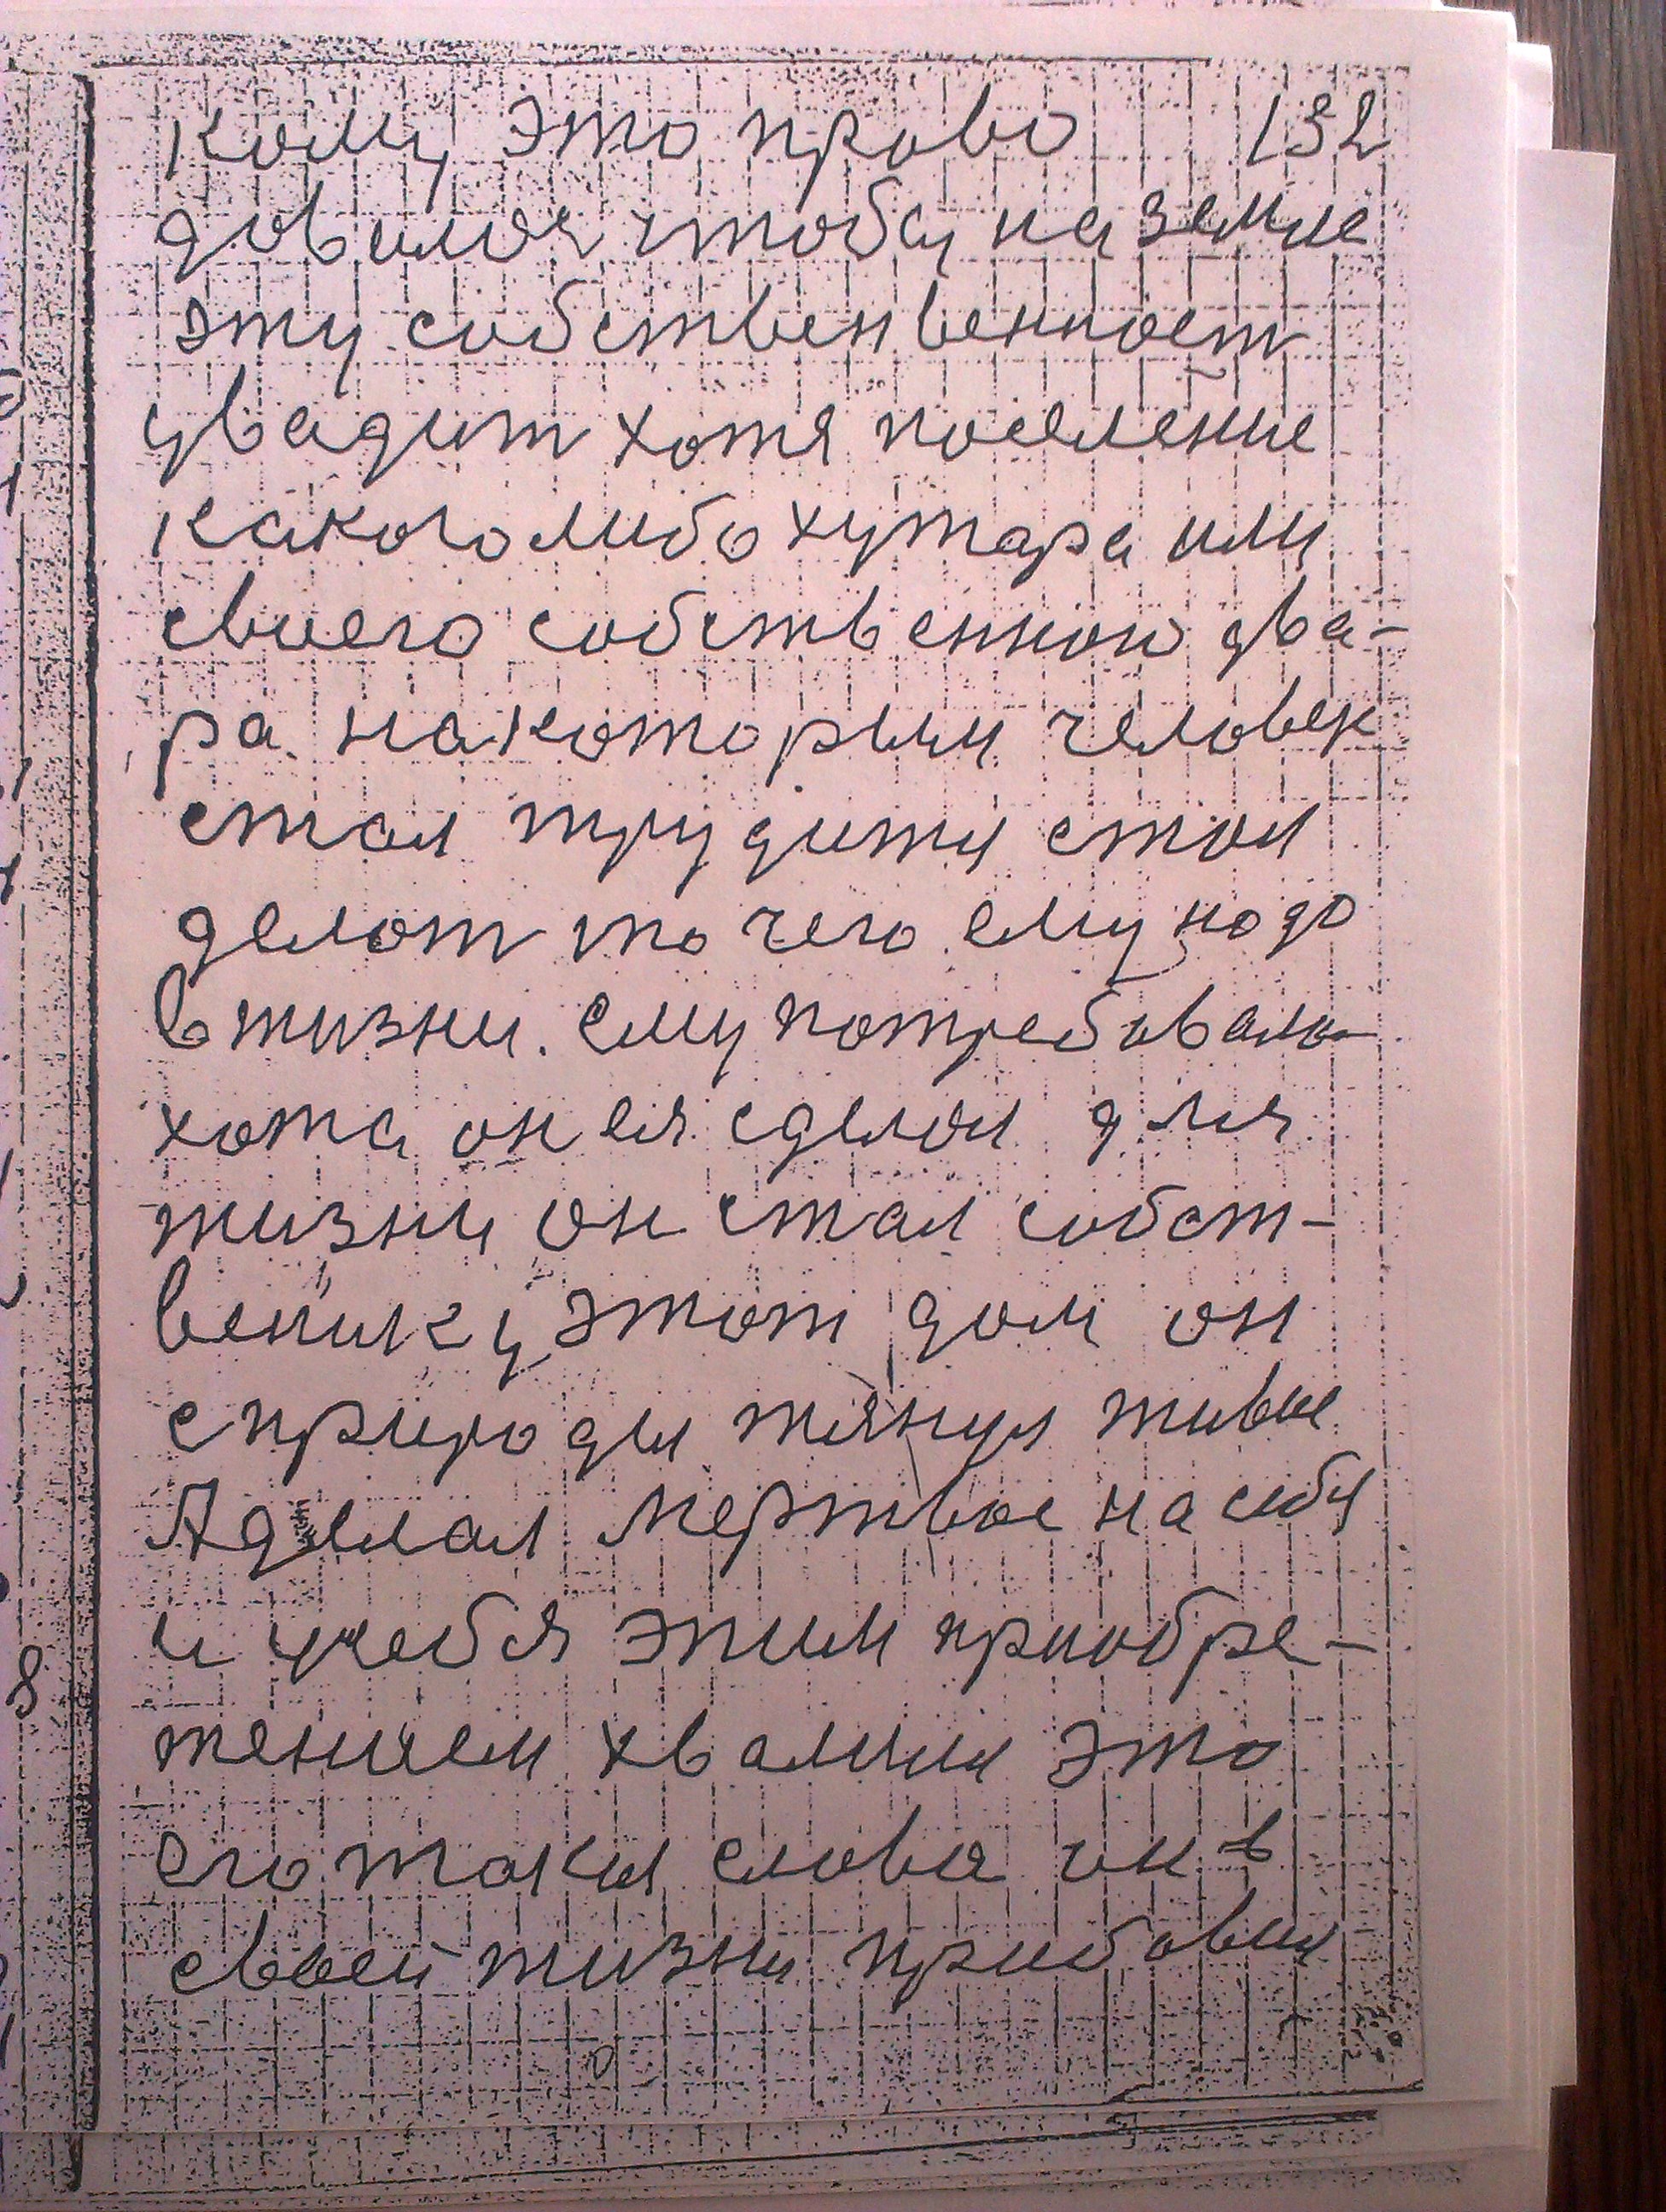 кому это право 132
довалоя чтобы на земле
эту собственвенност
увадит хотя поселение
каколо либо хутара или
своего собственнои два-
ра на которыи человек
стал трудитя стал
делат то чего ему надо
в жизни. ему потребовало
хата он ея сделал для
жизни он стал собст-
венику этот дом он
с природы тянул живое
А делал мертвое на себя
и у себя этим приобре-
тением хвалил это
его такия слова он в
своей жизни прибавил